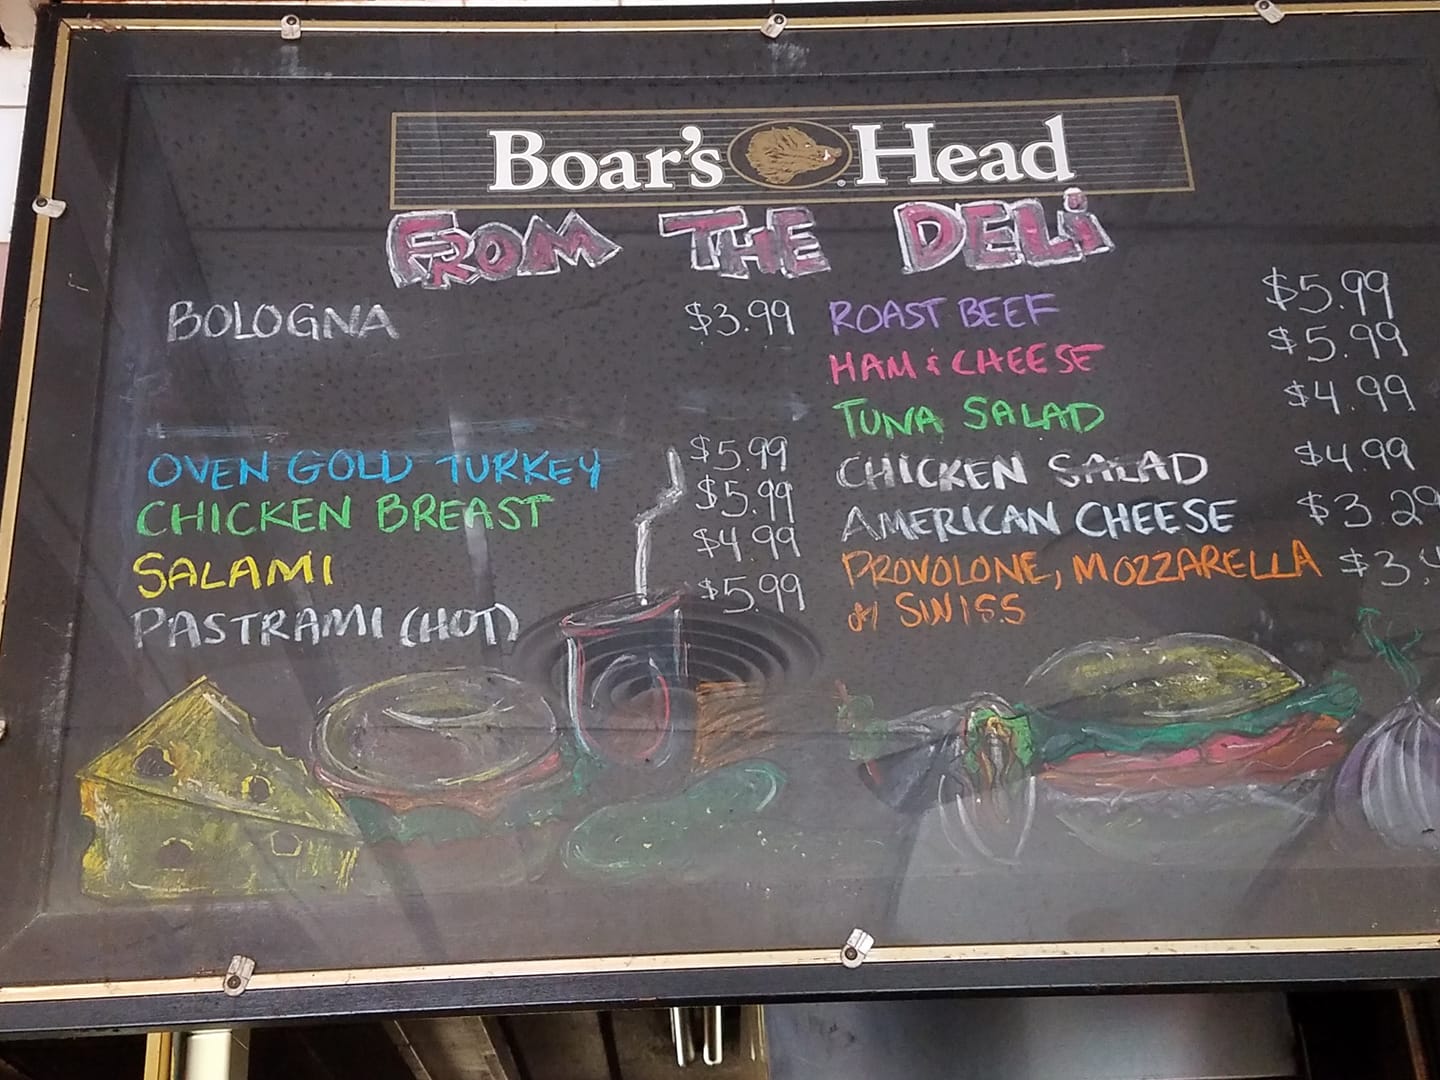 Boar's Head
FROM THE DELi
BOLOGNA $3.99
OVEN GOLD TURKEY $5.99
CHICKEN BREAST $5.99
SALAMI $4.99
PASTRAMI (HOT) $5.99
ROAST BEEF $5.99
HAM & CHEESE $5.99
TUNA SALAD $4.99
CHICKEN SALAD $4.99
AMERICAN CHEESE $3.29
PROVOLONE, MOZZARELLA $3.4
SWISS